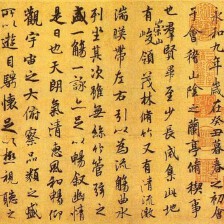 和九年歲在癸丑暮春
會稽山陰之蘭亭脩稧事
羣賢畢至少長咸集此地
有崇山峻領茂林脩竹又有清流激
湍暎帶左右引以為流觴曲水
列坐其次雖無絲竹管弦之
盛一觴一詠亦足以暢敘幽情
是日也天朗氣清惠風和暢仰
觀宇宙之大俯察品類之盛
所以遊目騁懷足以極視聽